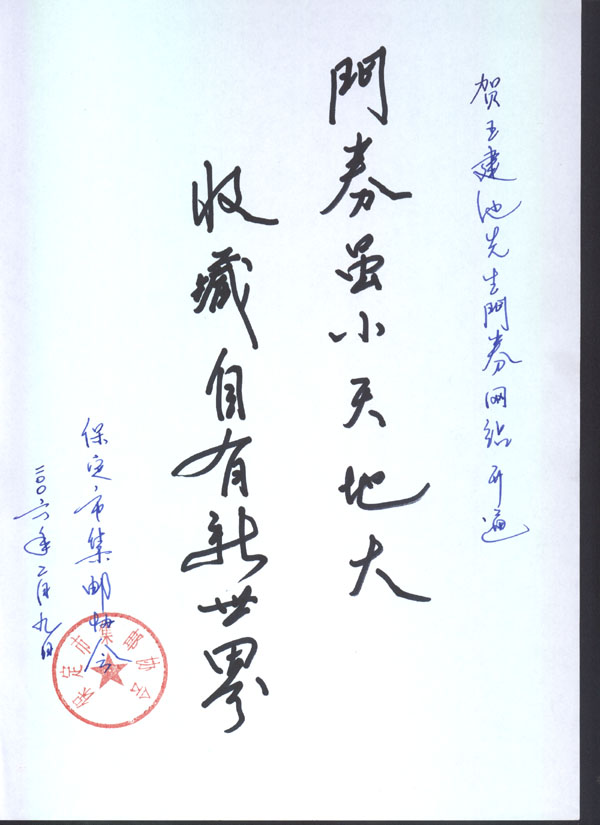 贺王建池先生門券网站开通
門券虽小天地大
收藏自有新世界
保定市集邮协会
二〇〇六年二月九日
保定市集邮协会